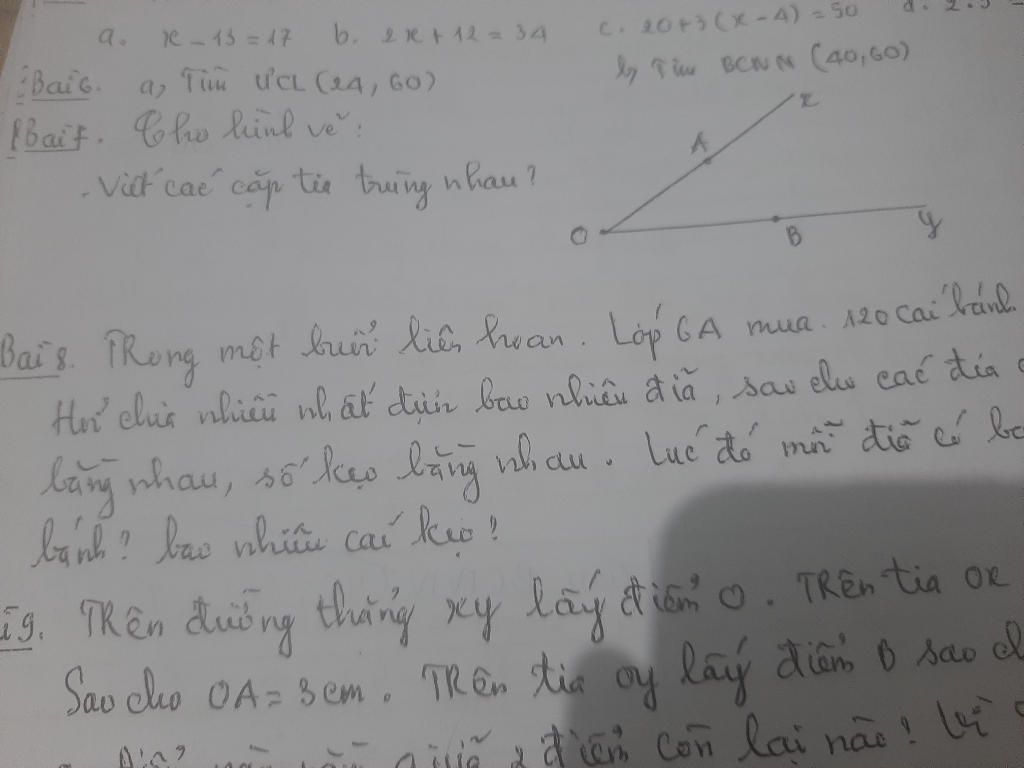 a. x - 13 = 17 b. 2x + 12 = 34 c. 20 + 3(x - 4) = 50 d. 2.5
Bài 6. a, Tìm ƯCL (24, 60) b, Tìm BCNN (40, 60)
Bài 7. Cho hình vẽ:
. Viết các cặp tia trùng nhau?
x
A
O
B
y
Bài 8. Trong một buổi liên hoan. Lớp 6A mua 120 cái bánh
Hỏi chia nhiều nhất được bao nhiêu đĩa, sao cho các đĩa
bằng nhau, số kẹo bằng nhau. Lúc đó mỗi đĩa có
bánh? bao nhiêu cái kẹo?
9. Trên đường thẳng xy lấy điểm O. Trên tia Ox
Sao cho OA = 3cm. Trên tia oy lấy điểm B sao
giữa 2 điểm còn lại nào? Vì